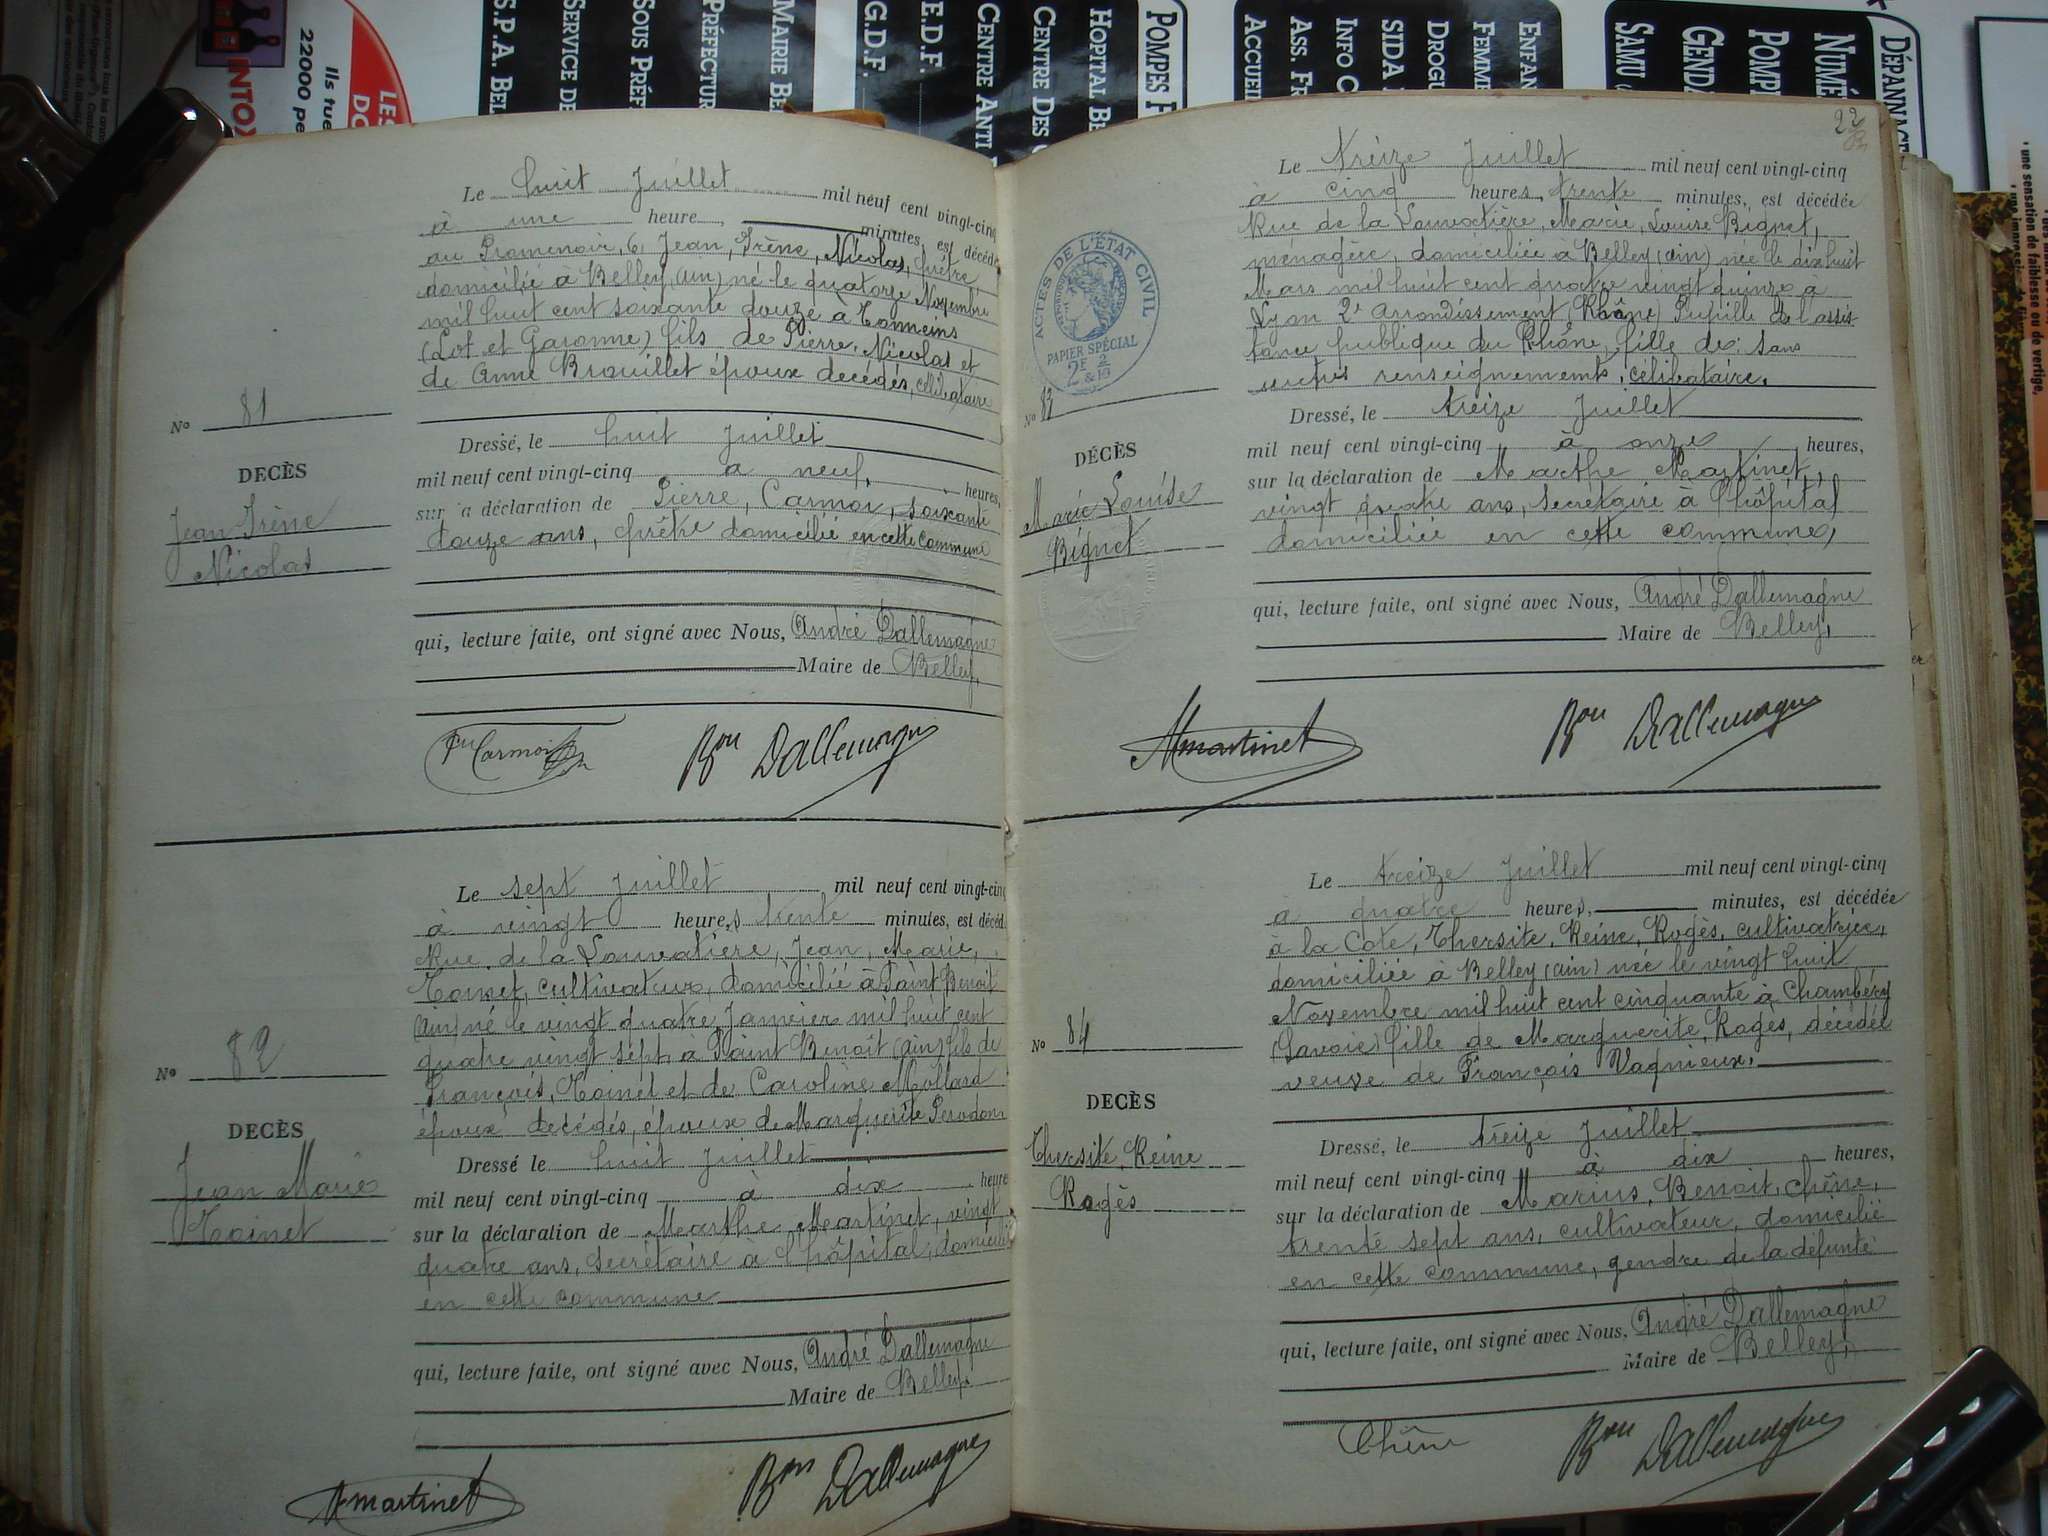 LES
DO
Ils tue
22000 pe
INTOX
S.P.A. BEL
SERVICE DE
SOUS PRÉF
PRÉFECTUR
MAIRIE BE
G.D.F.
E.D.F.
CENTRE ANTI
CENTRE DES
HOPITAL BE
POMPES F
ACCUEIL
ASS. FR
INFO C
SIDA
DROGU
FEMME
ENFAN
SAMU
GENDA
POMP
NUMÉ
DÉPANNAGE
une sensation de faiblesse ou de vertige,
Le huit Juillet mil neuf cent vingt-cinq
à une heure minutes, est décédé
au Promenoir, 6, Jean, Irène, Nicolas, prêtre,
domicilié à Belley (ain) né le quatorze Novembre
mil huit cent soixante douze à Tonneins
(Lot et Garonne) fils de Pierre, Nicolas et
de Anne Brouillet époux decédés, célibataire
No 81
DECÈS
Jean Irène
Nicolas
Dressé, le huit Juillet
mil neuf cent vingt-cinq à neuf, heures,
sur a déclaration de Pierre, Carmoi, soixante
douze ans, prêtre domicilié en cette commune
qui, lecture faite, ont signé avec Nous, André Dallemagne
Maire de Belley,
Carmoi Bon Dallemagne
Le sept Juillet mil neuf cent vingt-cinq
à vingt heures trente minutes, est décédé
Rue de la Louvatière, Jean, Marie,
Toinet, cultivateur, domicilié à Saint Benoit
(ain) né le vingt quatre Janvier mil huit cent
quatre vingt sept à Saint Benoit (ain) fils de
François, Toinet et de Caroline Mollard
époux decédés, époux de Marguerite Perodon
No 82
DECÈS
Jean Marie
Toinet
Dressé le huit Juillet
mil neuf cent vingt-cinq à dix heure
sur la déclaration de Marthe Martinet, vingt
quatre ans, secrétaire à l'hôpital, domicilié
en cette commune
qui, lecture faite, ont signé avec Nous, André Dallemagne
Maire de Belley,
Mmartinet Bon Dallemagne
22
Le treize Juillet mil neuf cent vingt-cinq
à cinq heures trente minutes, est décédée
Rue de la Louvatière, Marie, Louise Bignet,
ménagère, domiciliée à Belley (ain) née le dix huit
Mars mil huit cent quatre vingt quinze à
Lyon 2e arrondissement (Rhône) Pupille de l'assis
tance publique du Rhône, fille de: sans
autres renseignements, célibataire.
ACTES DE L'ÉTAT CIVIL
PAPIER SPÉCIAL
2F & 2/10
No 83
DÉCÈS
Marie Louise
Bignet
Dressé, le treize Juillet
mil neuf cent vingt-cinq à onze heures,
sur la déclaration de Marthe Martinet,
vingt quatre ans, secrétaire à l'hôpital
domiciliée en cette commune,
qui, lecture faite, ont signé avec Nous, André Dallemagne
Maire de Belley,
Mmartinet Bon Dallemagne
Le treize Juillet mil neuf cent vingt-cinq
à quatre heures, minutes, est décédée
à la Cote, Thersite, Reine, Rogès, cultivatrice,
domiciliée à Belley (ain) née le vingt huit
Novembre mil huit cent cinquante à Chambéry
(Savoie) fille de Marguerite, Rogès, décédée
veuve de François Vagnieux.
No 84
DECÈS
Thersite, Reine
Rogès
Dressé, le treize Juillet
mil neuf cent vingt-cinq à dix heures,
sur la déclaration de Marius, Benoit, Chêne,
trente sept ans, cultivateur, domicilié
en cette commune, gendre de la défunte
qui, lecture faite, ont signé avec Nous, André Dallemagne
Maire de Belley,
Chêne Bon Dallemagne